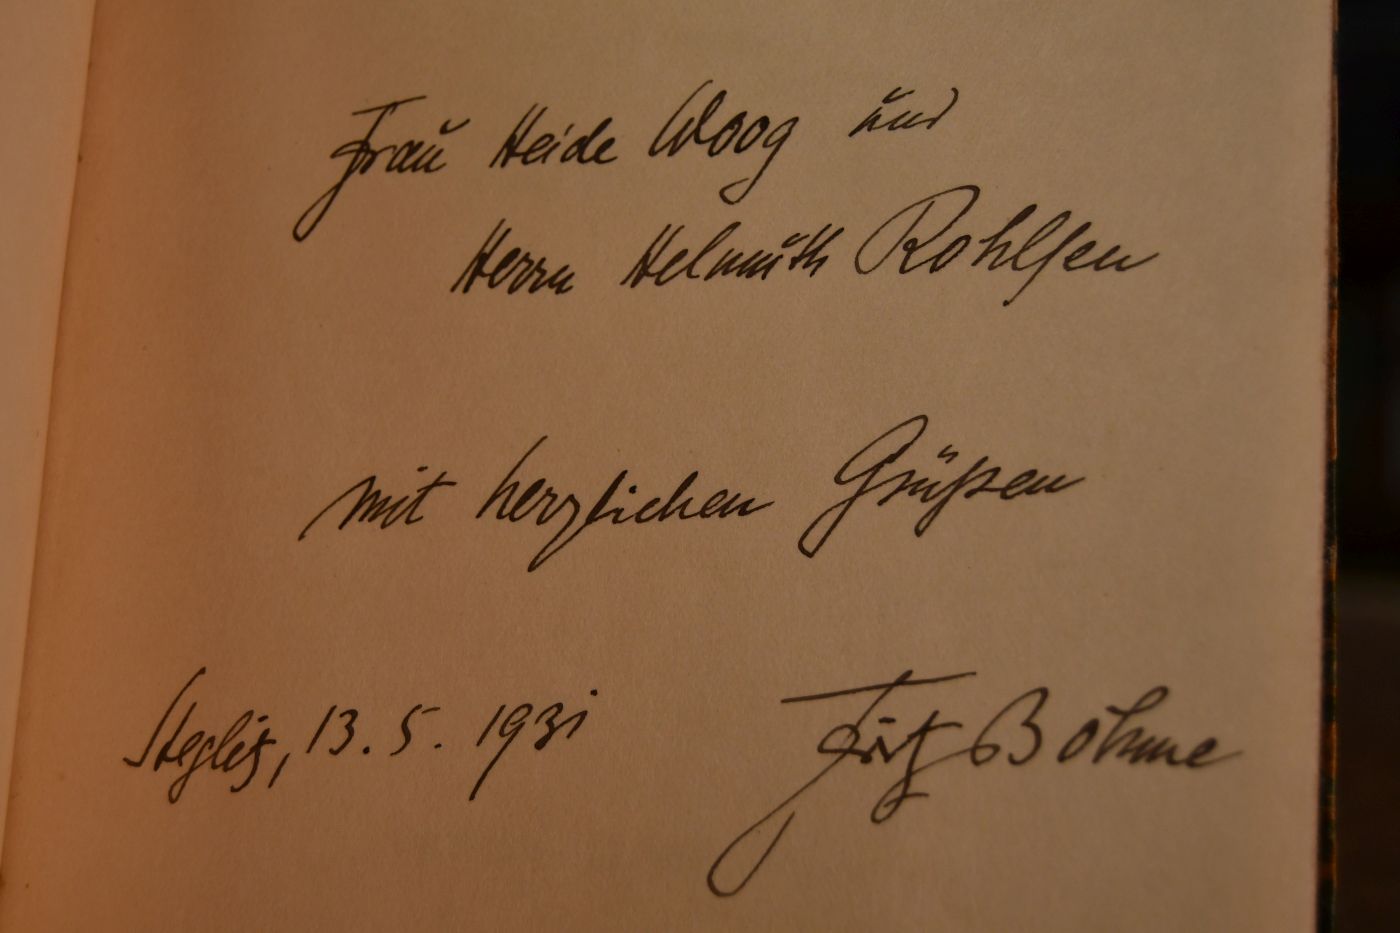 Frau Heide Woog und
Herrn Helmuth Rohlsen
mit herzlichen Grüßen
Steglitz, 13. 5. 1931
Fritz Böhme